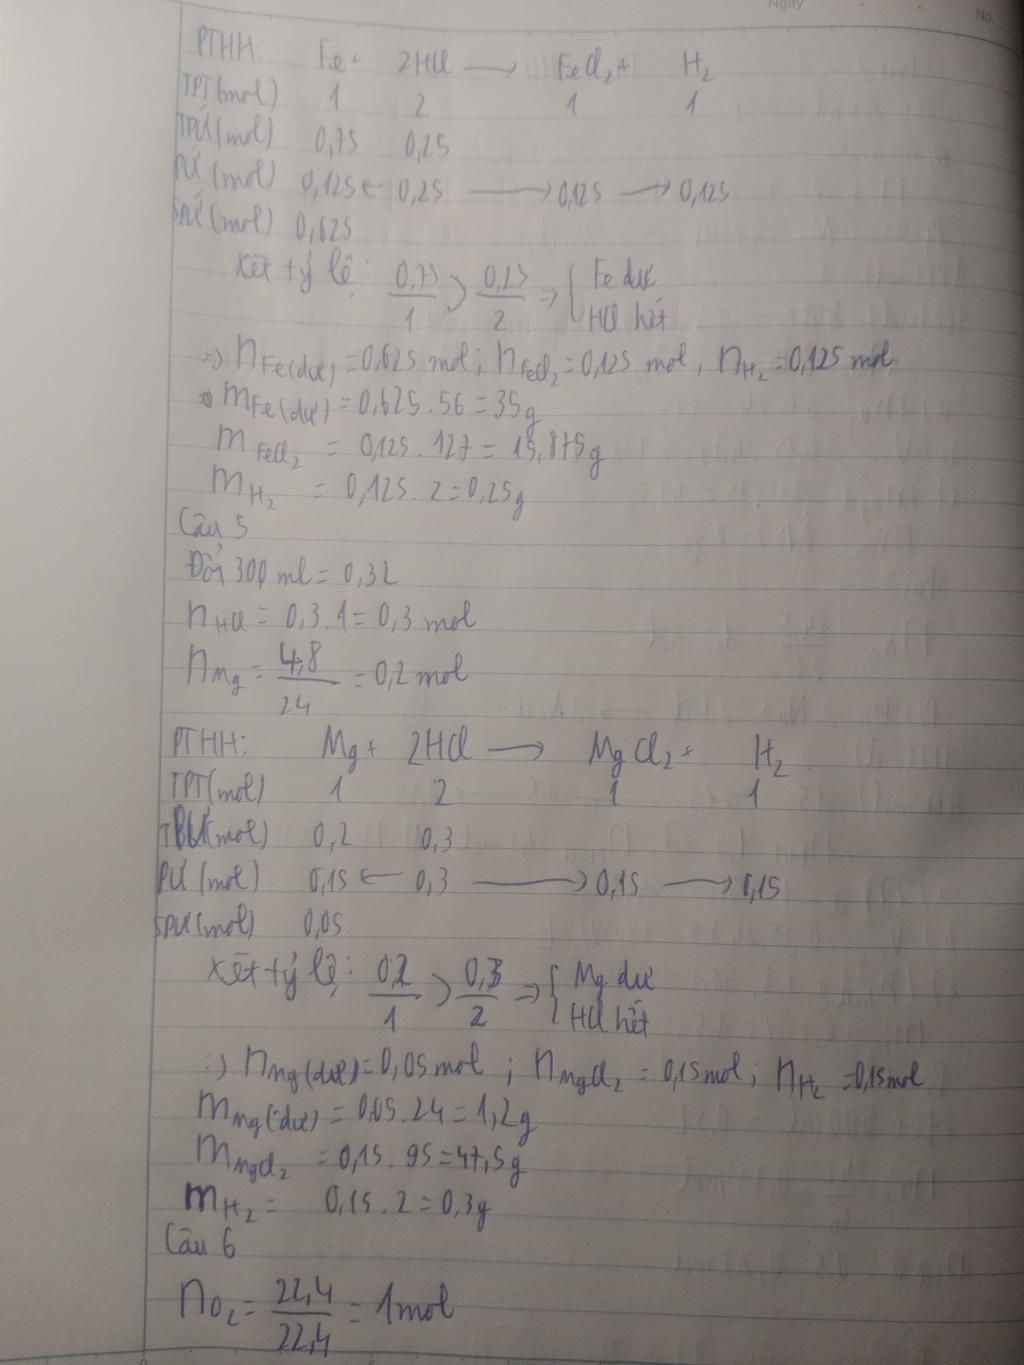 Ngày
No.
PTHH: Fe + 2HCl → FeCl₂ + H₂
TPT(mol) 1 2 1 1
TPƯ(mol) 0,75 0,25
PƯ (mol) 0,125 ← 0,25 → 0,125 → 0,125
SPƯ(mol) 0,625
Xét tỷ lệ: 0,75/1 > 0,25/2 ⇒ { Fe dư
HCl hết
⇒ nFe(dư) = 0,625 mol; nFeCl₂ = 0,125 mol, nH₂ = 0,125 mol
mFe(dư) = 0,625.56 = 35g
mFeCl₂ = 0,125.127 = 15,875g
mH₂ = 0,125.2 = 0,25g
Câu 5
Đổi 300 ml = 0,3L
nHCl = 0,3.1 = 0,3 mol
nMg = 4,8/24 = 0,2 mol
PTHH: Mg + 2HCl → MgCl₂ + H₂
TPT(mol) 1 2 1 1
(mol) 0,2 0,3
PƯ (mol) 0,15 ← 0,3 → 0,15 → 0,15
SPƯ(mol) 0,05
Xét tỷ lệ: 0,2/1 > 0,3/2 ⇒ { Mg dư
HCl hết
⇒ nMg(dư) = 0,05 mol; nMgCl₂ = 0,15 mol; nH₂ = 0,15 mol
mMg(dư) = 0,05.24 = 1,2g
mMgCl₂ = 0,15.95 = 47,5g
mH₂ = 0,15.2 = 0,3g
Câu 6
nO₂ = 22,4/22,4 = 1mol